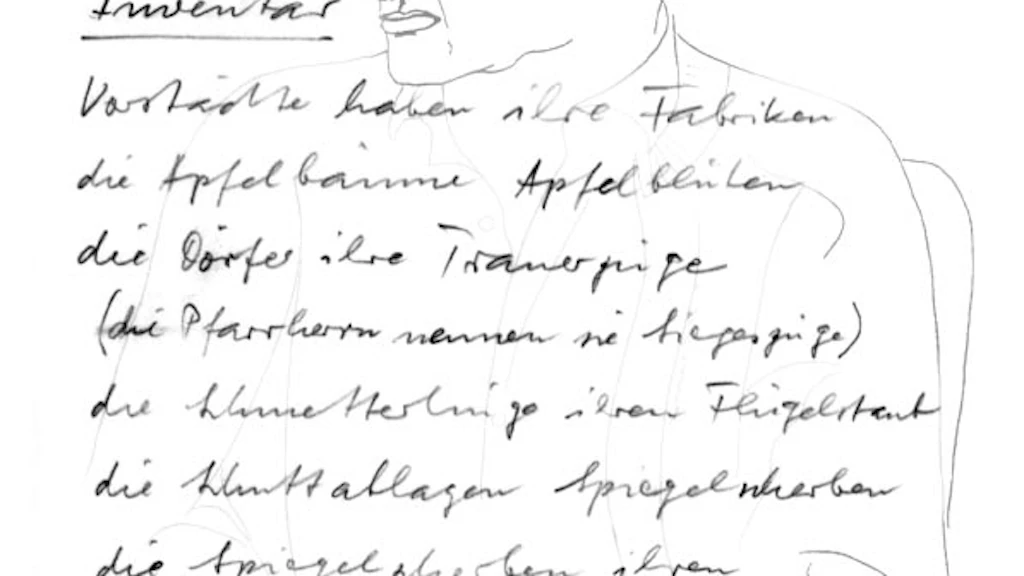 Inventar
Vorstädte haben ihre Fabriken
die Apfelbäume Apfelblüten
die Dörfer ihre Trauerzüge
(die Pfarrherrn nennen sie Siegeszüge)
die Schmetterlinge ihren Flügelstaub
die Schuttablagen Spiegelscherben
die Spiegelscherben ihren